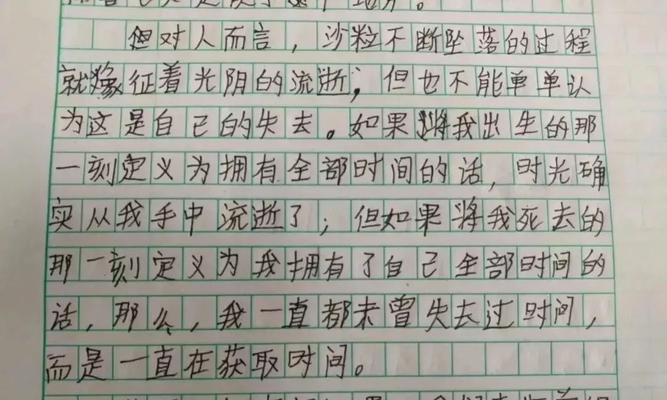 但对人而言，沙粒不断坠落的过程
就像征着光阴的流逝，但也不能单单认
为这是自己的失去。如果将我出生的那
一刻定义为拥有全部时间的话，时光确
实从我手中流逝了；但如果将我死去的
那一刻定义为我拥有了自己全部时间的
话，那么，我一直都未曾失去过时间，
而是一直在获取时间。